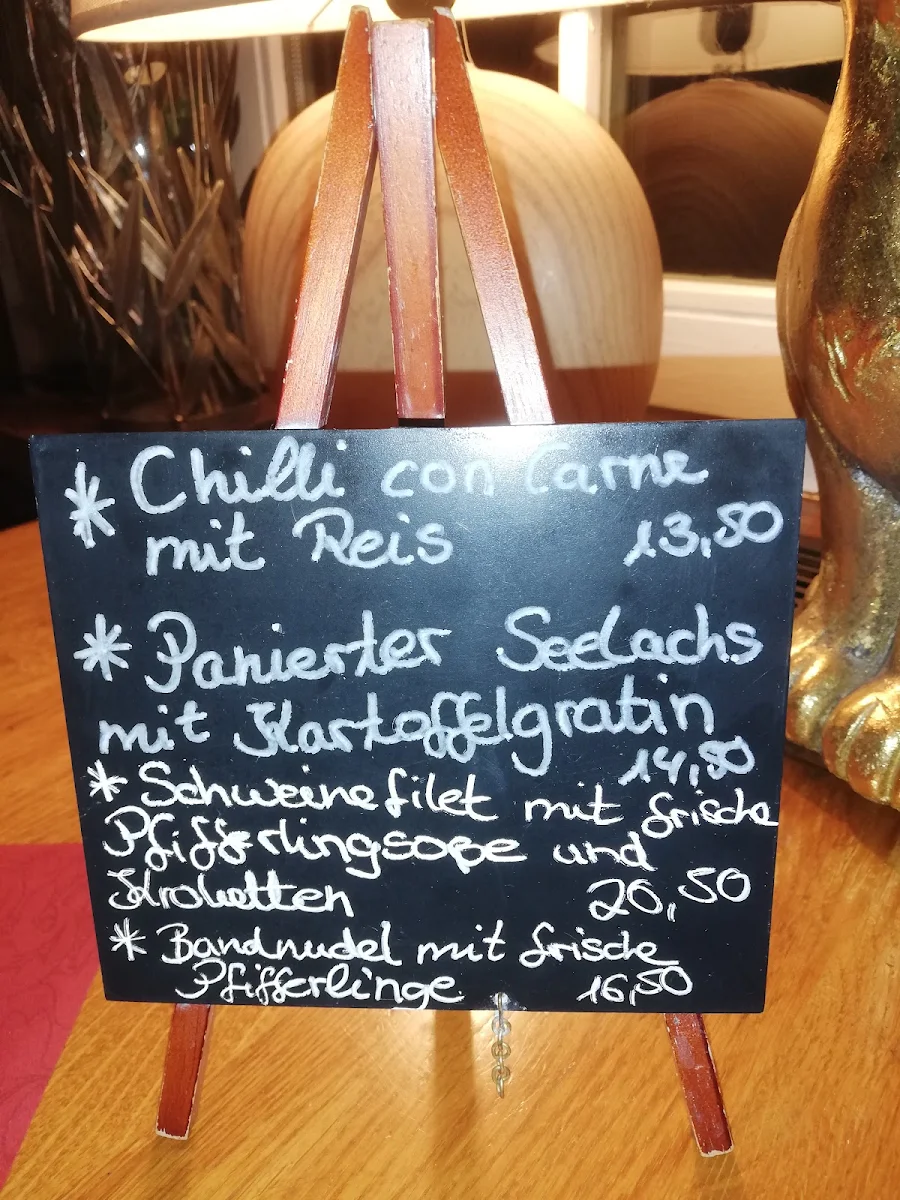 * Chilli con Carne
mit Reis 13,50
* Panierter Seelachs
mit Kartoffelgratin
14,50
* Schweinefilet mit frische
Pfifferlingsoße und
Kroketten 20,50
* Bandnudel mit frische
Pfifferlinge 16,50